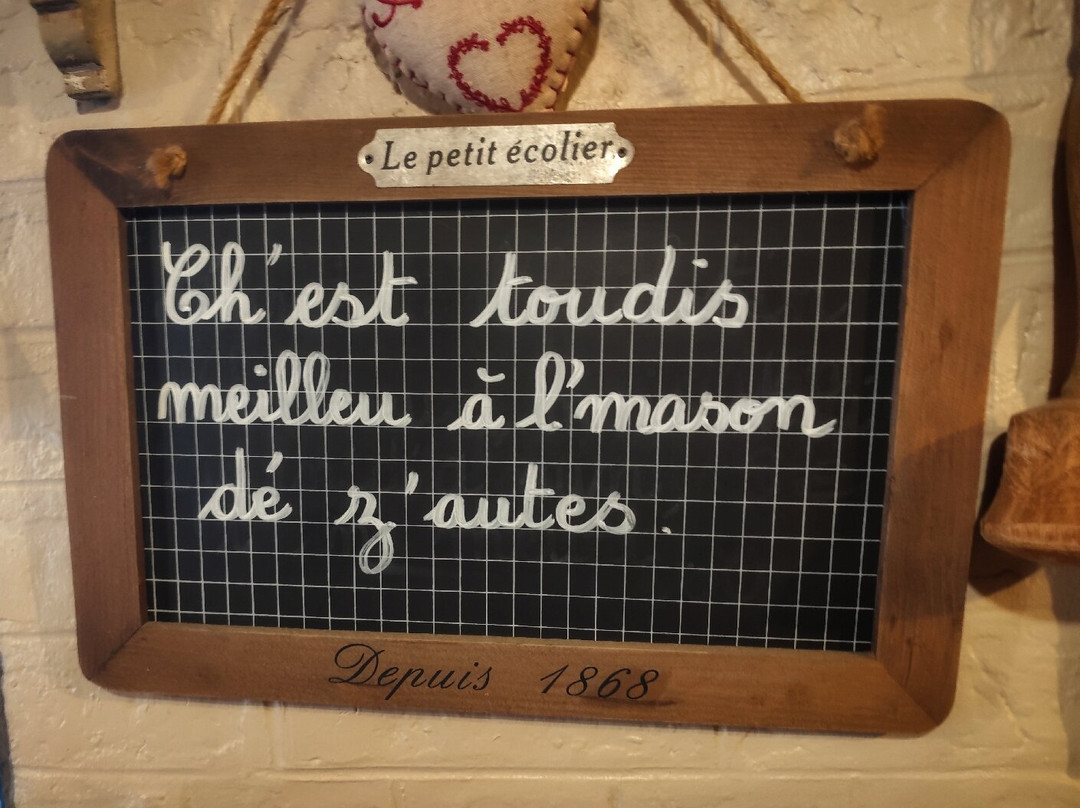 Le petit écolier
Ch'est toudis
meilleu à l'mason
dé z'autes.
Depuis 1868